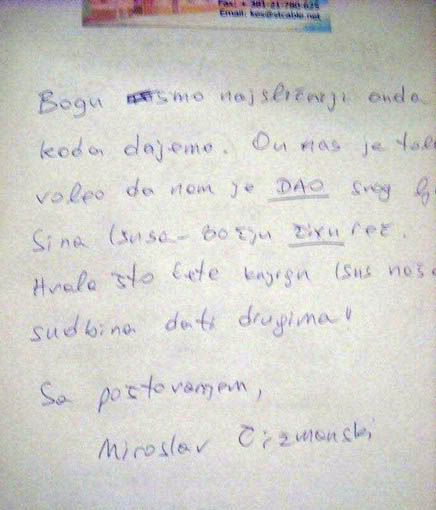 Fax: + 381 21 780 625
Email: kes@stcable.net
Bogu smo najsličniji onda
kada dajemo. On nas je tol
voleo da nam je DAO svog
Sina Isusa - Božju živu reč.
Hvala što ćete knjigu Isus naša
sudbina dati drugima!
Sa poštovanjem,
Miroslav Čizmanski